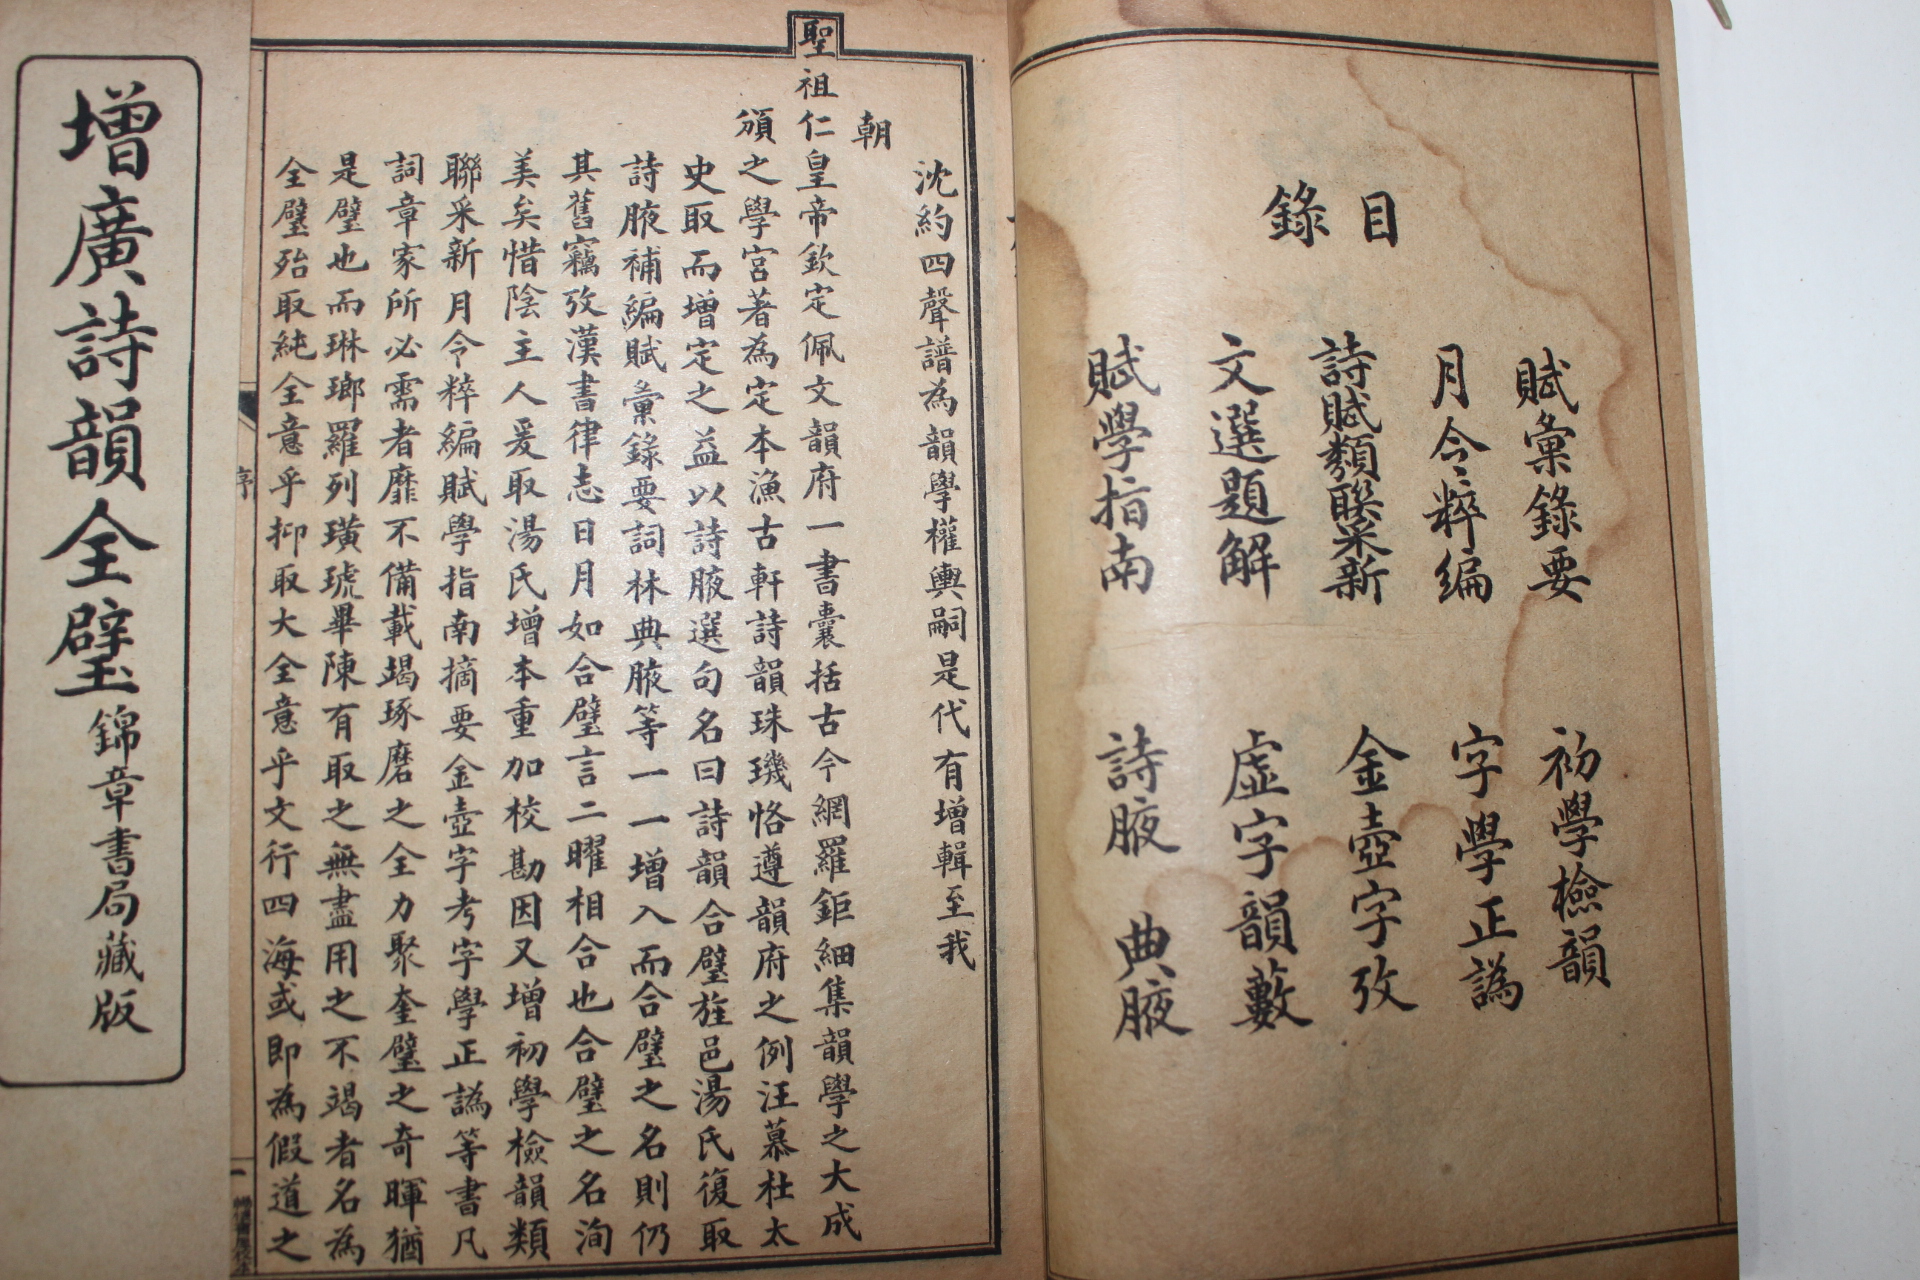 目錄
賦彙錄要
初學檢韻
月令粹編
字學正譌
詩賦類聯采新
金壺字攷
文選題解
虛字韻藪
賦學指南
詩腋
典腋
沈約四聲譜為韻學權輿嗣是代有增輯至我
朝
聖祖仁皇帝欽定佩文韻府一書囊括古今網羅鉅細集韻學之大成
頒之學宮著為定本漁古軒詩韻珠璣恪遵韻府之例汪慕杜太
史取而增定之益以詩腋選句名曰詩韻合璧旌邑湯氏復取
詩腋補編賦彙錄要詞林典腋等一一增入而合璧之名則仍
其舊竊攷漢書律志日月如合璧言二曜相合也合璧之名洵
美矣惜陰主人爰取湯氏增本重加校勘因又增初學檢韻類
聯采新月令粹編賦學指南摘要金壺字考字學正譌等書凡
詞章家所必需者靡不備載竭琢磨之全力聚奎璧之奇暉猶
是璧也而琳瑯羅列璜琥畢陳有取之無盡用之不竭者名為
全璧殆取純全意乎抑取大全意乎文行四海或即為假道之
序
一
增廣詩韻全璧
錦章書局藏版